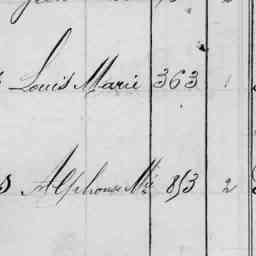 Louis Marie 363 1
Alphonse Mie 853 2